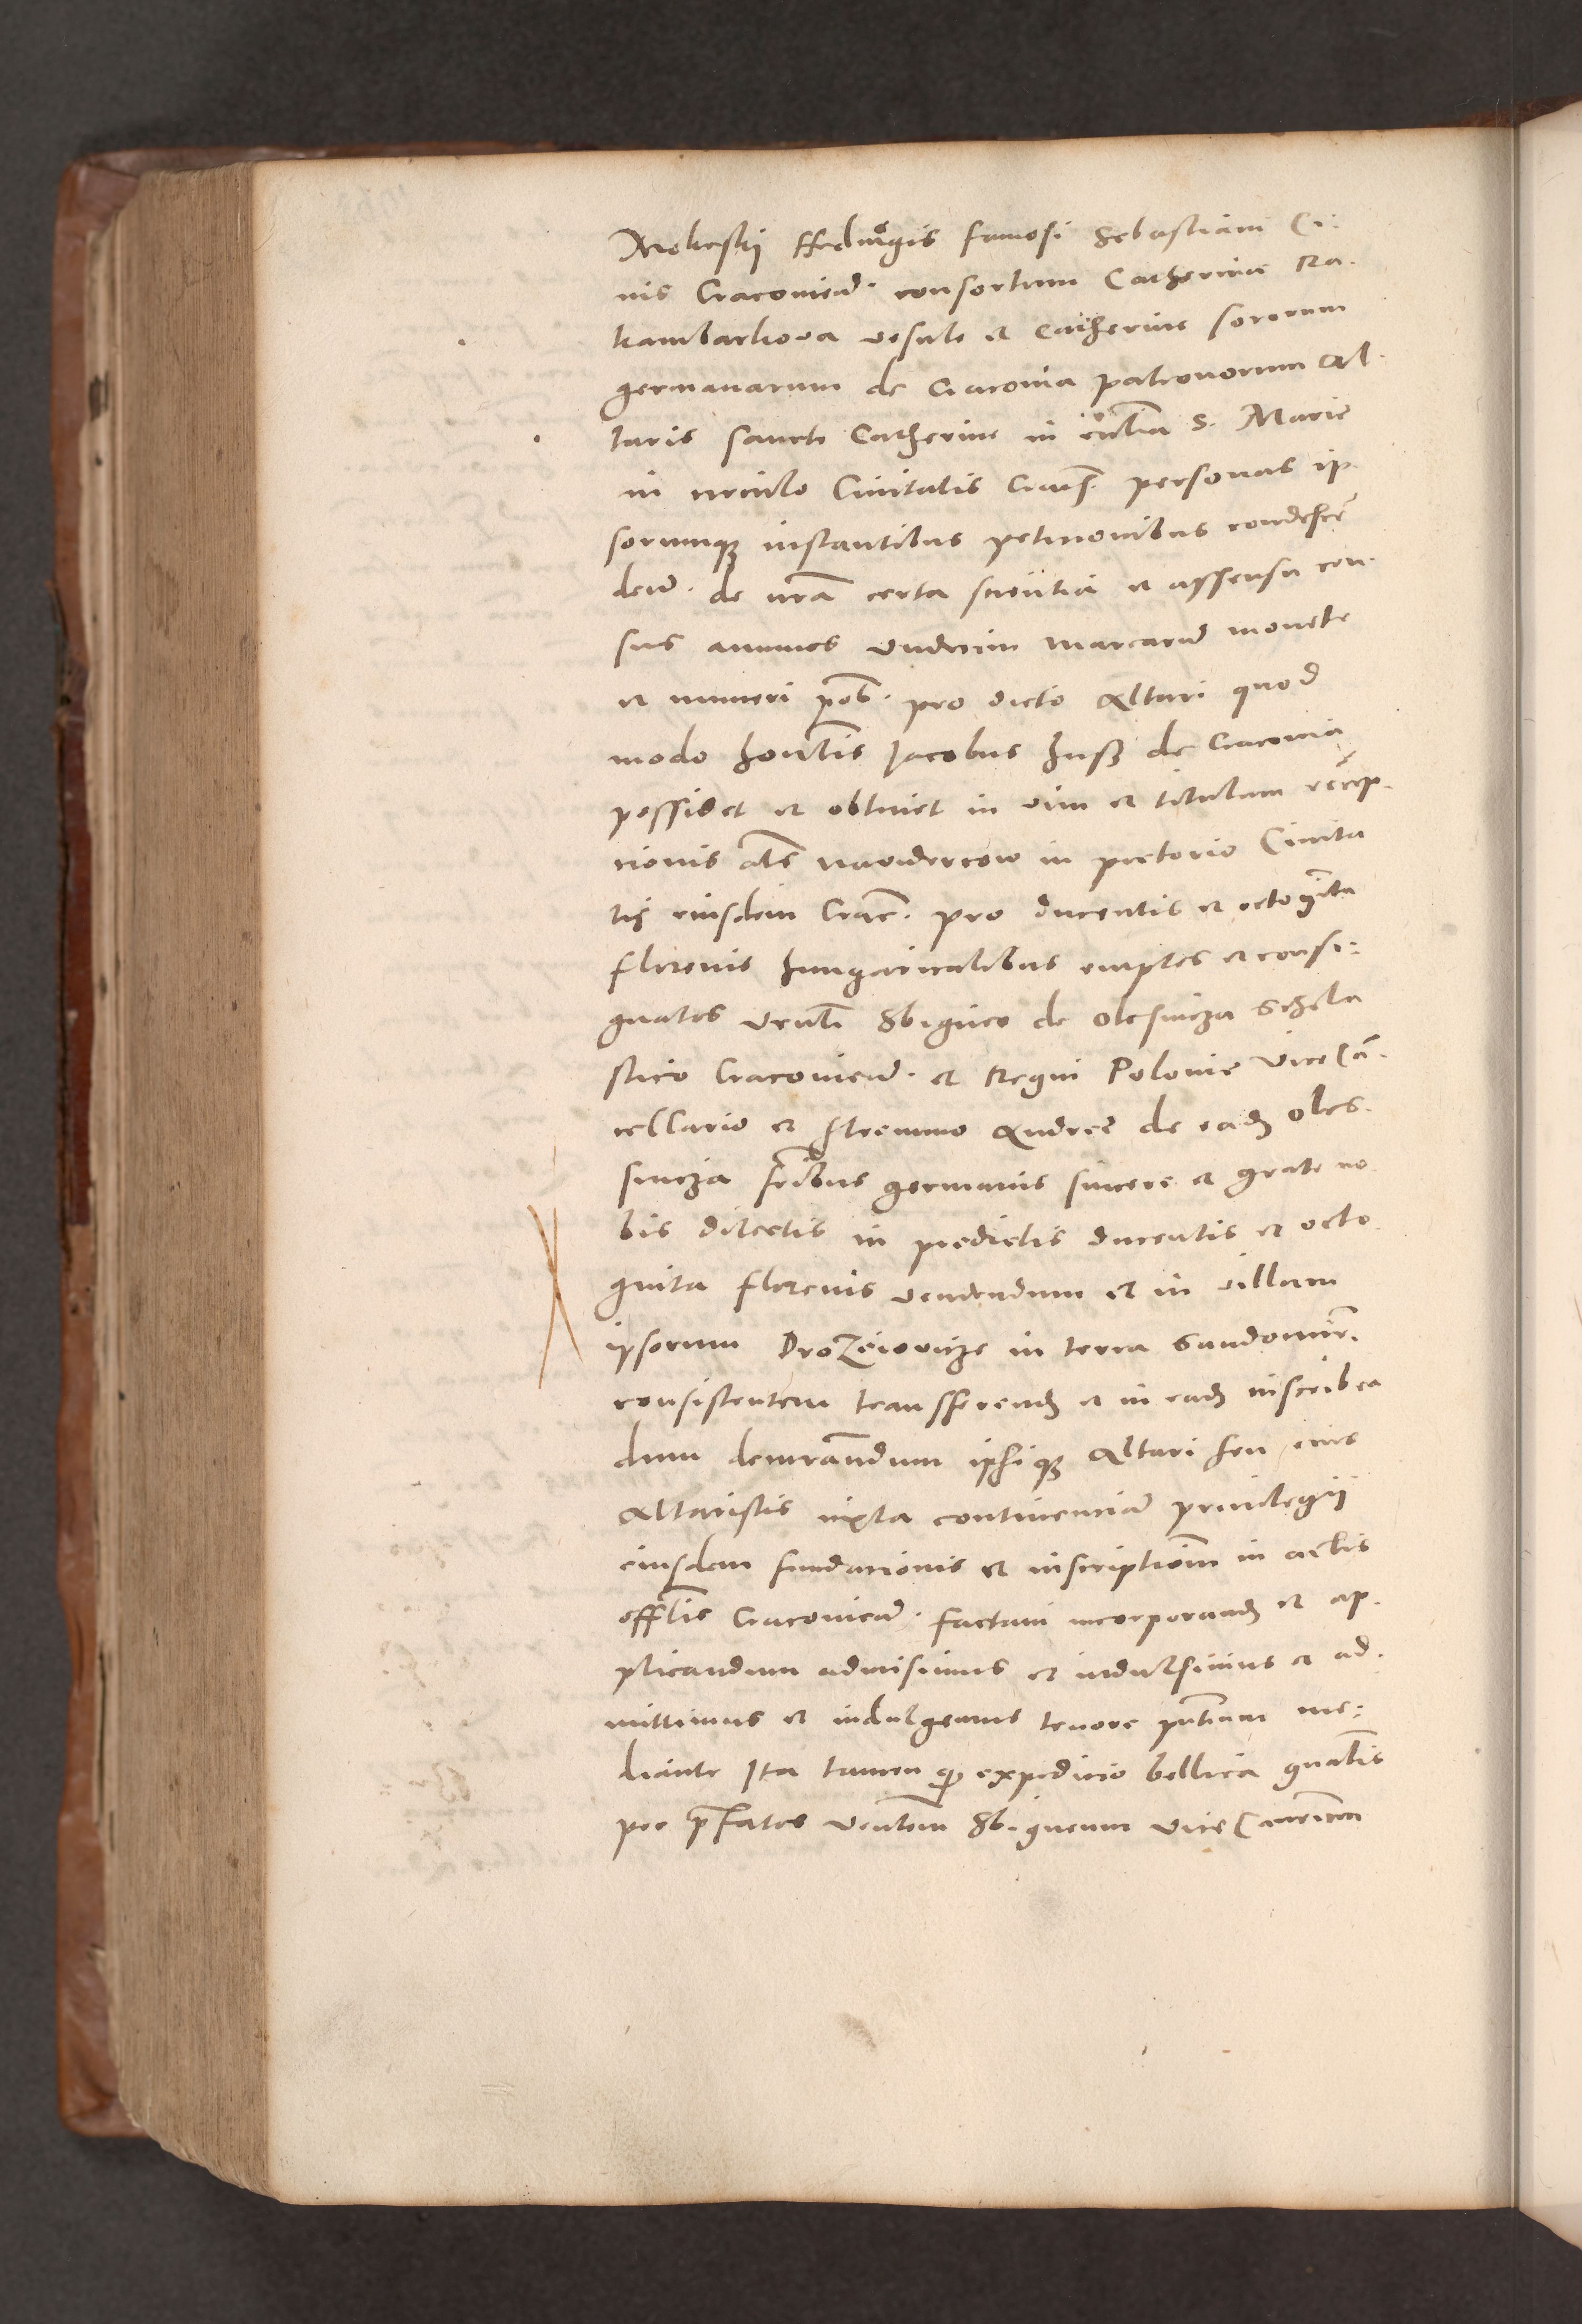 Mokrskij Heduigis famosi Sebastiani Ci:
uis Cracovien̄. consortum Catherina Ra.
kambarkova vrsule et Catherine sororum
germanarum de Cracovia patronorum Al.
taris sancte Catherine in eccl̄ia S. Marie
in circulo Ciuitatis Crac̄. personas ip
sorumq₃ instantibus peticionibus condescē
den̄. de nr̄a certa scientia et assensu cen
sus annuos vndecim marcarū monete
et numeri pol̄. pro dicto Altari quod
modo honl̄is Jacobus huss de Cracovia
possidet et obtinet in vim et titulum reemp.
cionis al̄s nawderkow in pretorio Ciuita
tis eiusdem Crac̄. pro ducentis et octogīta
florenis hungaricalibus emptos et consi:
gnatos Venl̄i Sbigneo de Olesnicza Schola
stico Cracovien̄. et Regni Polonie ViceCā.
cellario et strennuo Andree de ead₃ Oles
snicza fr̄ibus germanis sincere et grate no
bis dilectis in predictis ducentis et octo
ginta florenis vendendum et in villam
ipsorum Drozeiovicze in terra Sandomir̄.
consistentem transferend₃ et in ead₃ inscriben
dum demrandum ipsiq₃ Altari seu eius
Altaristis iuxta continenciā priuilegij
eiusdem fundacionis et inscriptiōm in actis
offl̄is Cracovien̄. factam incorporand₃ et ap.
plicandum admisimus et indulsimus et ad.
mittimus et indulgemus tenore pn̄tium me:
diante Ita tamen q̄ expedicio bellica qual̄is
per prefatos Venl̄em Sbigneum ViceCancellm̄